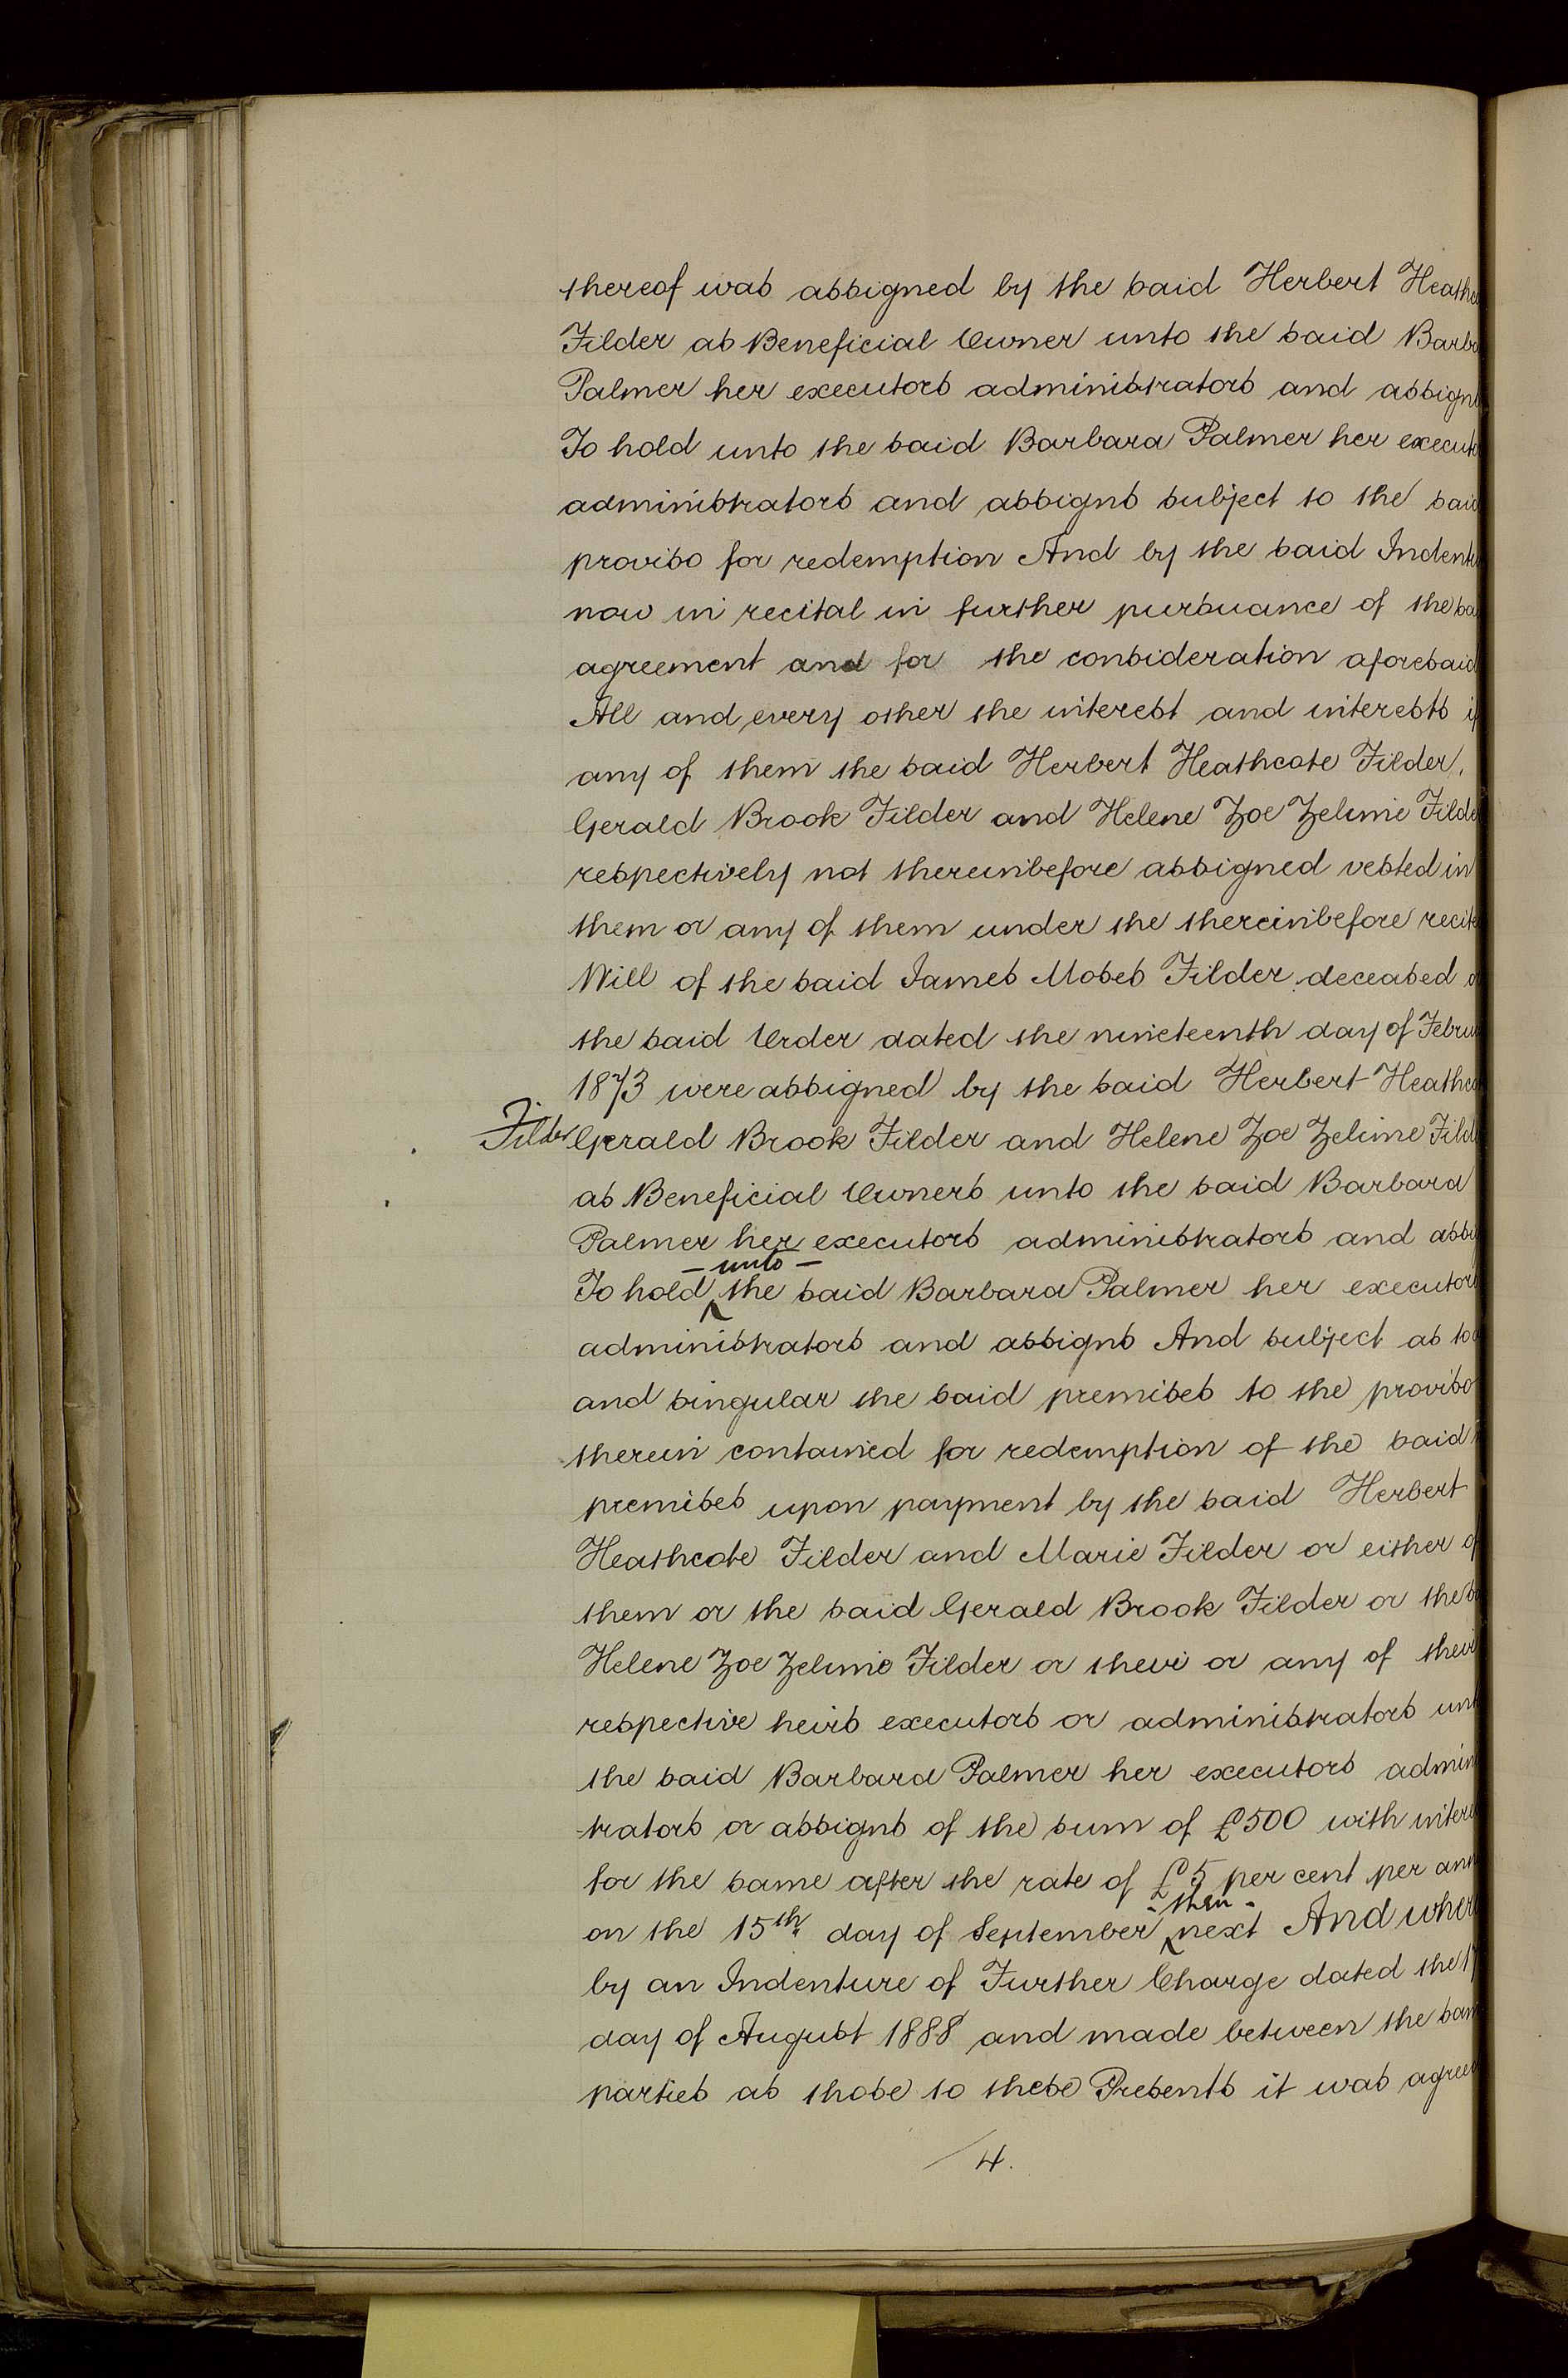 thereof was assigned by the said Herbert Heathco
Filder as Beneficial Owner unto the said Barba
Palmer her executors administrators and assigns
To hold unto the said Barbara Palmer her executo
administrators and assigns subject to the said
proviso for redemption And by the said Indentu
now in recital in further pursuance of the sa
agreement and for the consideration aforesaid
All and every other the interest and interests if
any of them the said Herbert Heathcote Filder,
Gerald Brook Filder and Helene Zoe Zelime Filde
respectively not thereinbefore assigned vested in
them or any of them under the thereinbefore recite
Will of the said James Moses Filder deceased o
the said Order dated the nineteenth day of Februa
1873 were assigned by the said Herbert Heathco
Filder Gerald Brook Filder and Helene Zoe Zelime Fild
as Beneficial Owners unto the said Barbara
Palmer her executors administrators and assi
- unto -
To hold ^ the said Barbara Palmer her executors
administrators and assigns And subject as to a
and singular the said premises to the proviso
therein contained for redemption of the said
premises upon payment by the said Herbert
Heathcote Filder and Marie Filder or either of
them or the said Gerald Brook Filder or the sa
Helene Zoe Zelime Filder or their or any of their
respective heirs executors or administrators unt
the said Barbara Palmer her executors adminis
trators or assigns of the sum of £500 with intere
for the same after the rate of £5 per cent per ann
- then -
on the 15th day of September ^ next And wher
by an Indenture of Further Charge dated the 17
day of August 1888 and made between the sam
parties as those to these Presents it was agreed
4.